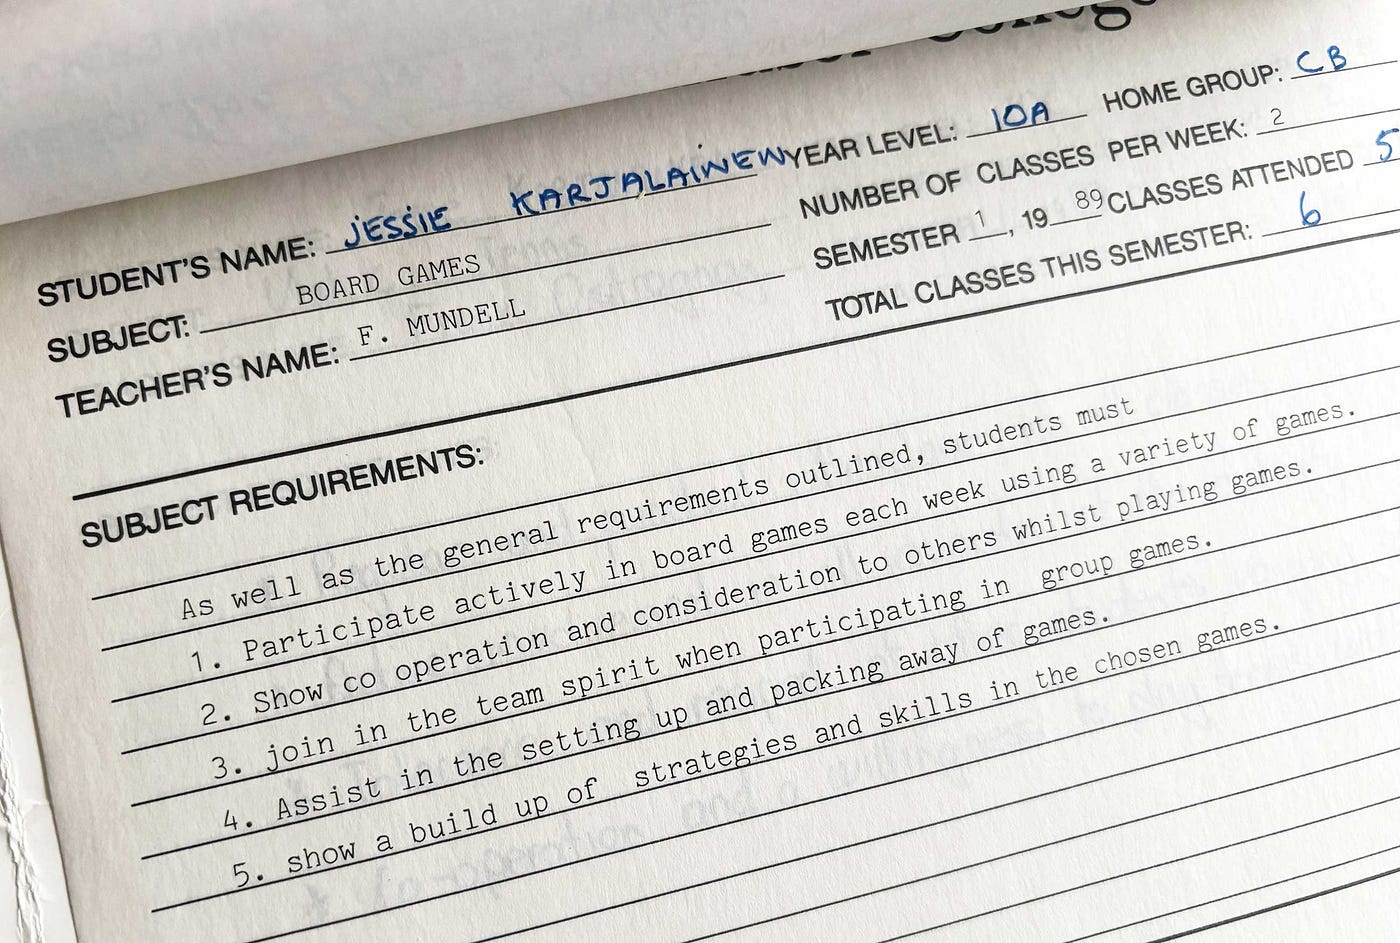 College
STUDENT'S NAME: JESSIE KARJALAINEN YEAR LEVEL: 10A HOME GROUP: CB
SUBJECT: BOARD GAMES NUMBER OF CLASSES PER WEEK: 2
TEACHER'S NAME: F. MUNDELL SEMESTER 1, 19 89 CLASSES ATTENDED 5
TOTAL CLASSES THIS SEMESTER: 6
SUBJECT REQUIREMENTS:
As well as the general requirements outlined, students must
1. Participate actively in board games each week using a variety of games.
2. Show co operation and consideration to others whilst playing games.
3. join in the team spirit when participating in group games.
4. Assist in the setting up and packing away of games.
5. show a build up of strategies and skills in the chosen games.